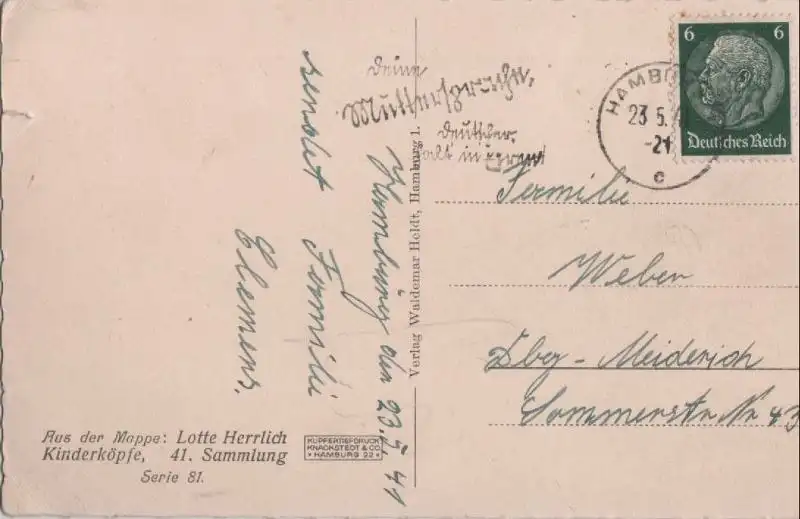 6 6
Deutsches Reich
HAMBU
23 5.
-21
c
Deine
Muttersprache,
Deutscher,
halt in Ehren!
Familie
Weber
Dbg-Meiderich
Sommerstr. Nr 43
Hamburg den 23.5.41
sendet Familie
Clemens.
Verlag Waldemar Heldt, Hamburg 1.
Aus der Mappe: Lotte Herrlich
Kinderköpfe, 41. Sammlung
Serie 81.
KUPFERTIEFDRUCK
KNACKSTEDT & CO.
• HAMBURG 22 •